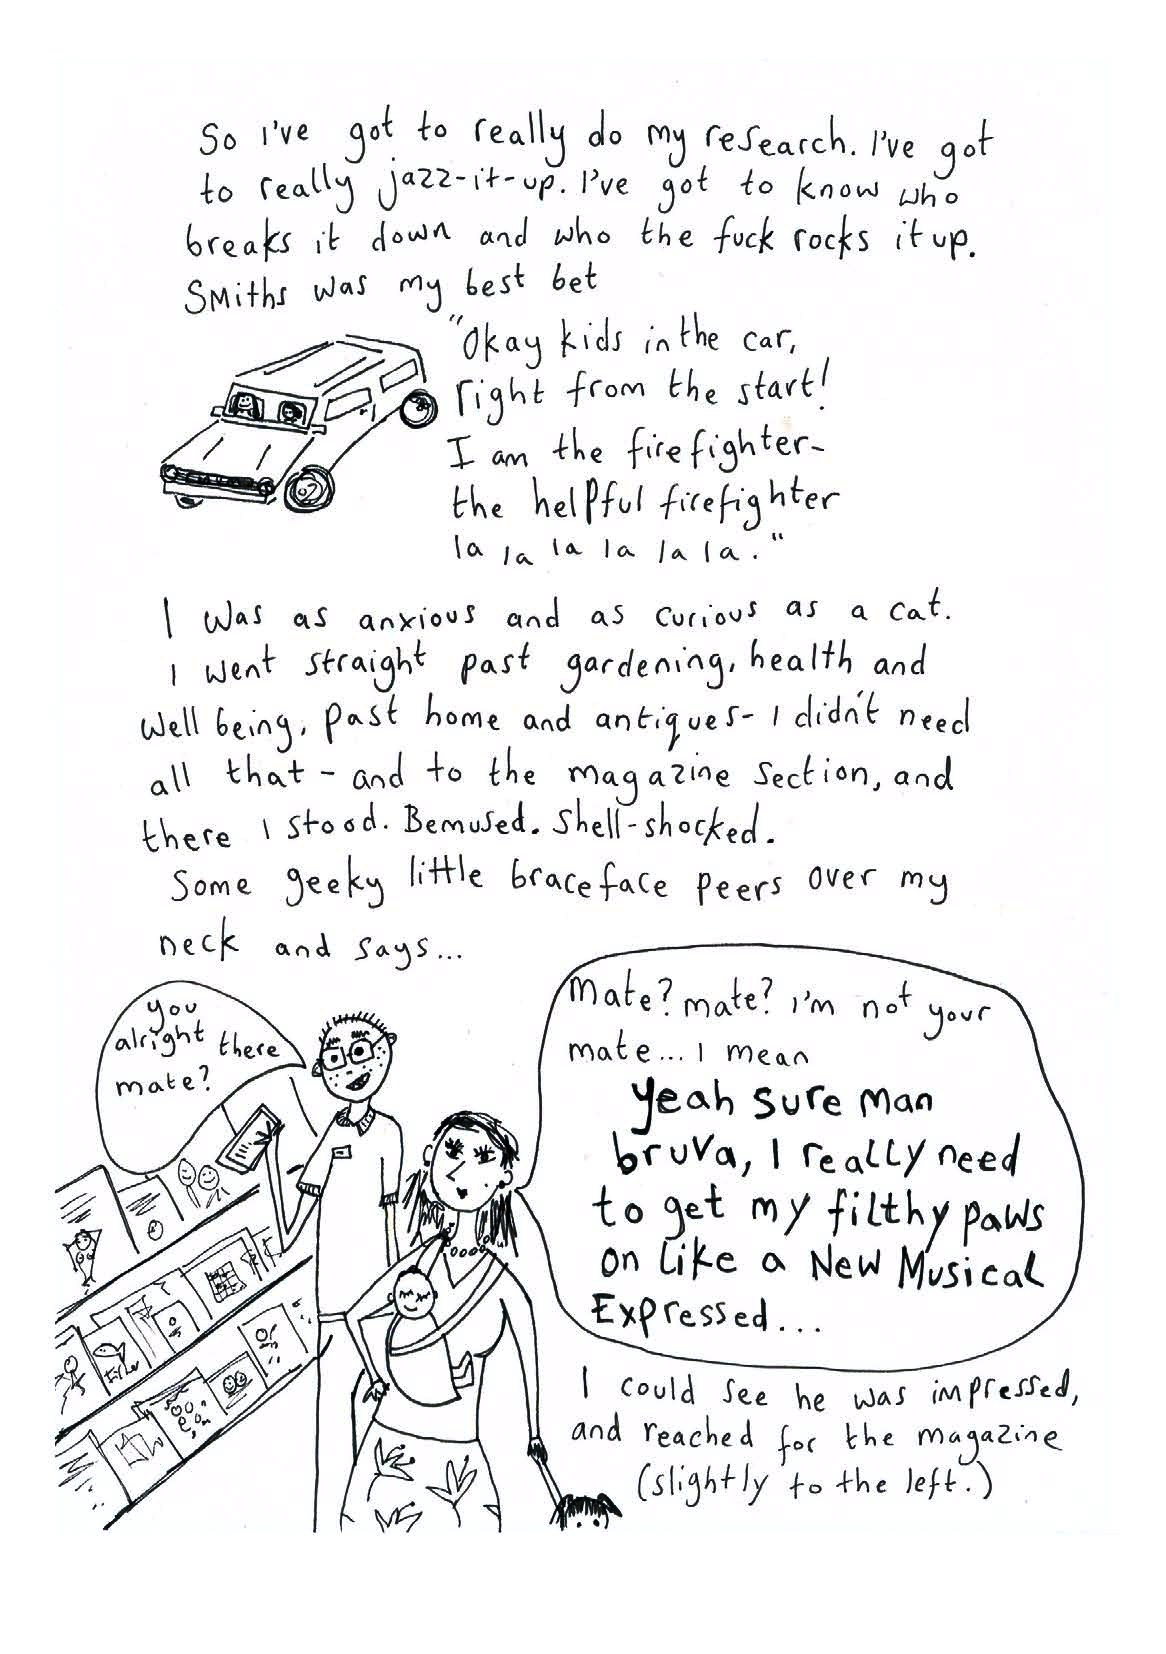 So I've got to really do my research. I've got
to really jazz-it-up. I've got to know who
breaks it down and who the fuck rocks it up.
Smiths was my best bet
"Okay kids in the car,
right from the start!
I am the firefighter-
the helpful firefighter
la la la la la la."
I was as anxious and as curious as a cat.
I went straight past gardening, health and
well being, past home and antiques- I didn't need
all that - and to the magazine section, and
there I stood. Bemused. Shell-shocked.
Some geeky little braceface peers over my
neck and says...
you
alright there
mate?
Mate? mate? I'm not your
mate... I mean
yeah sure man
bruva, I really need
to get my filthy paws
on like a New Musical
Expressed...
I could see he was impressed,
and reached for the magazine
(slightly to the left.)